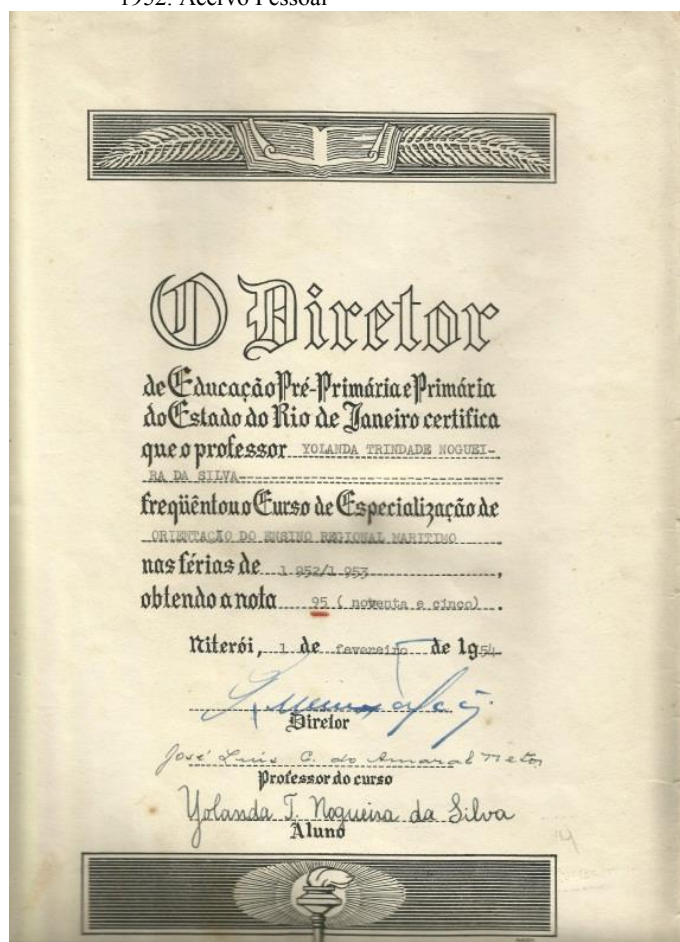 1952. Acervo Pessoal
O Diretor
de Educação Pré-Primária e Primária
do Estado do Rio de Janeiro certifica
que o professor YOLANDA TRINDADE NOGUEI-
RA DA SILVA
freqüêntou o Curso de Especialização de
ORIENTAÇÃO DO ENSINO REGIONAL MARITIMO
nas férias de 1 952/1 953,
obtendo a nota 95 ( noventa e cinco).
Niterói, 1 de fevereiro de 1954
Diretor
José Luis C. do Amaral Netor
Professor do curso
Yolanda T. Nogueira da Silva
Aluno